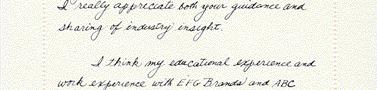 I really appreciate both your guidance and
sharing of industry insight.
I think my educational experience and
work experience with EFG Brands and ABC